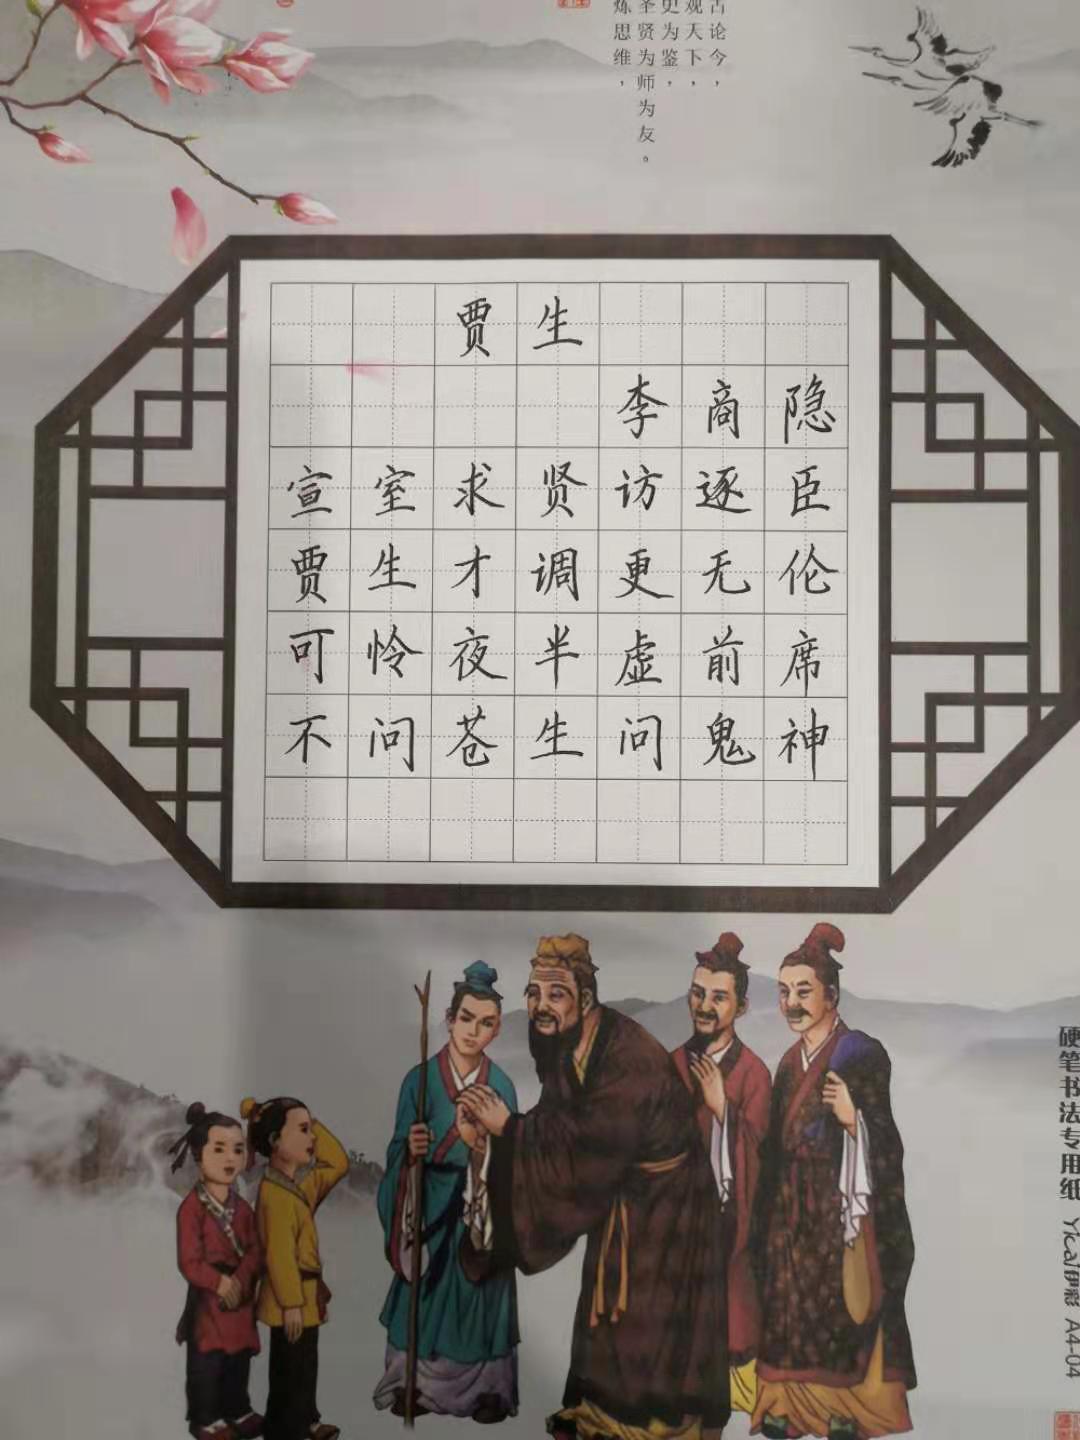 古论今，
观天下，
史为鉴，
圣贤为师为友。
炼思维，
贾生
李商隐
宣室求贤访逐臣
贾生才调更无伦
可怜夜半虚前席
不问苍生问鬼神
硬笔书法专用纸 Yicai伊彩 A4-04